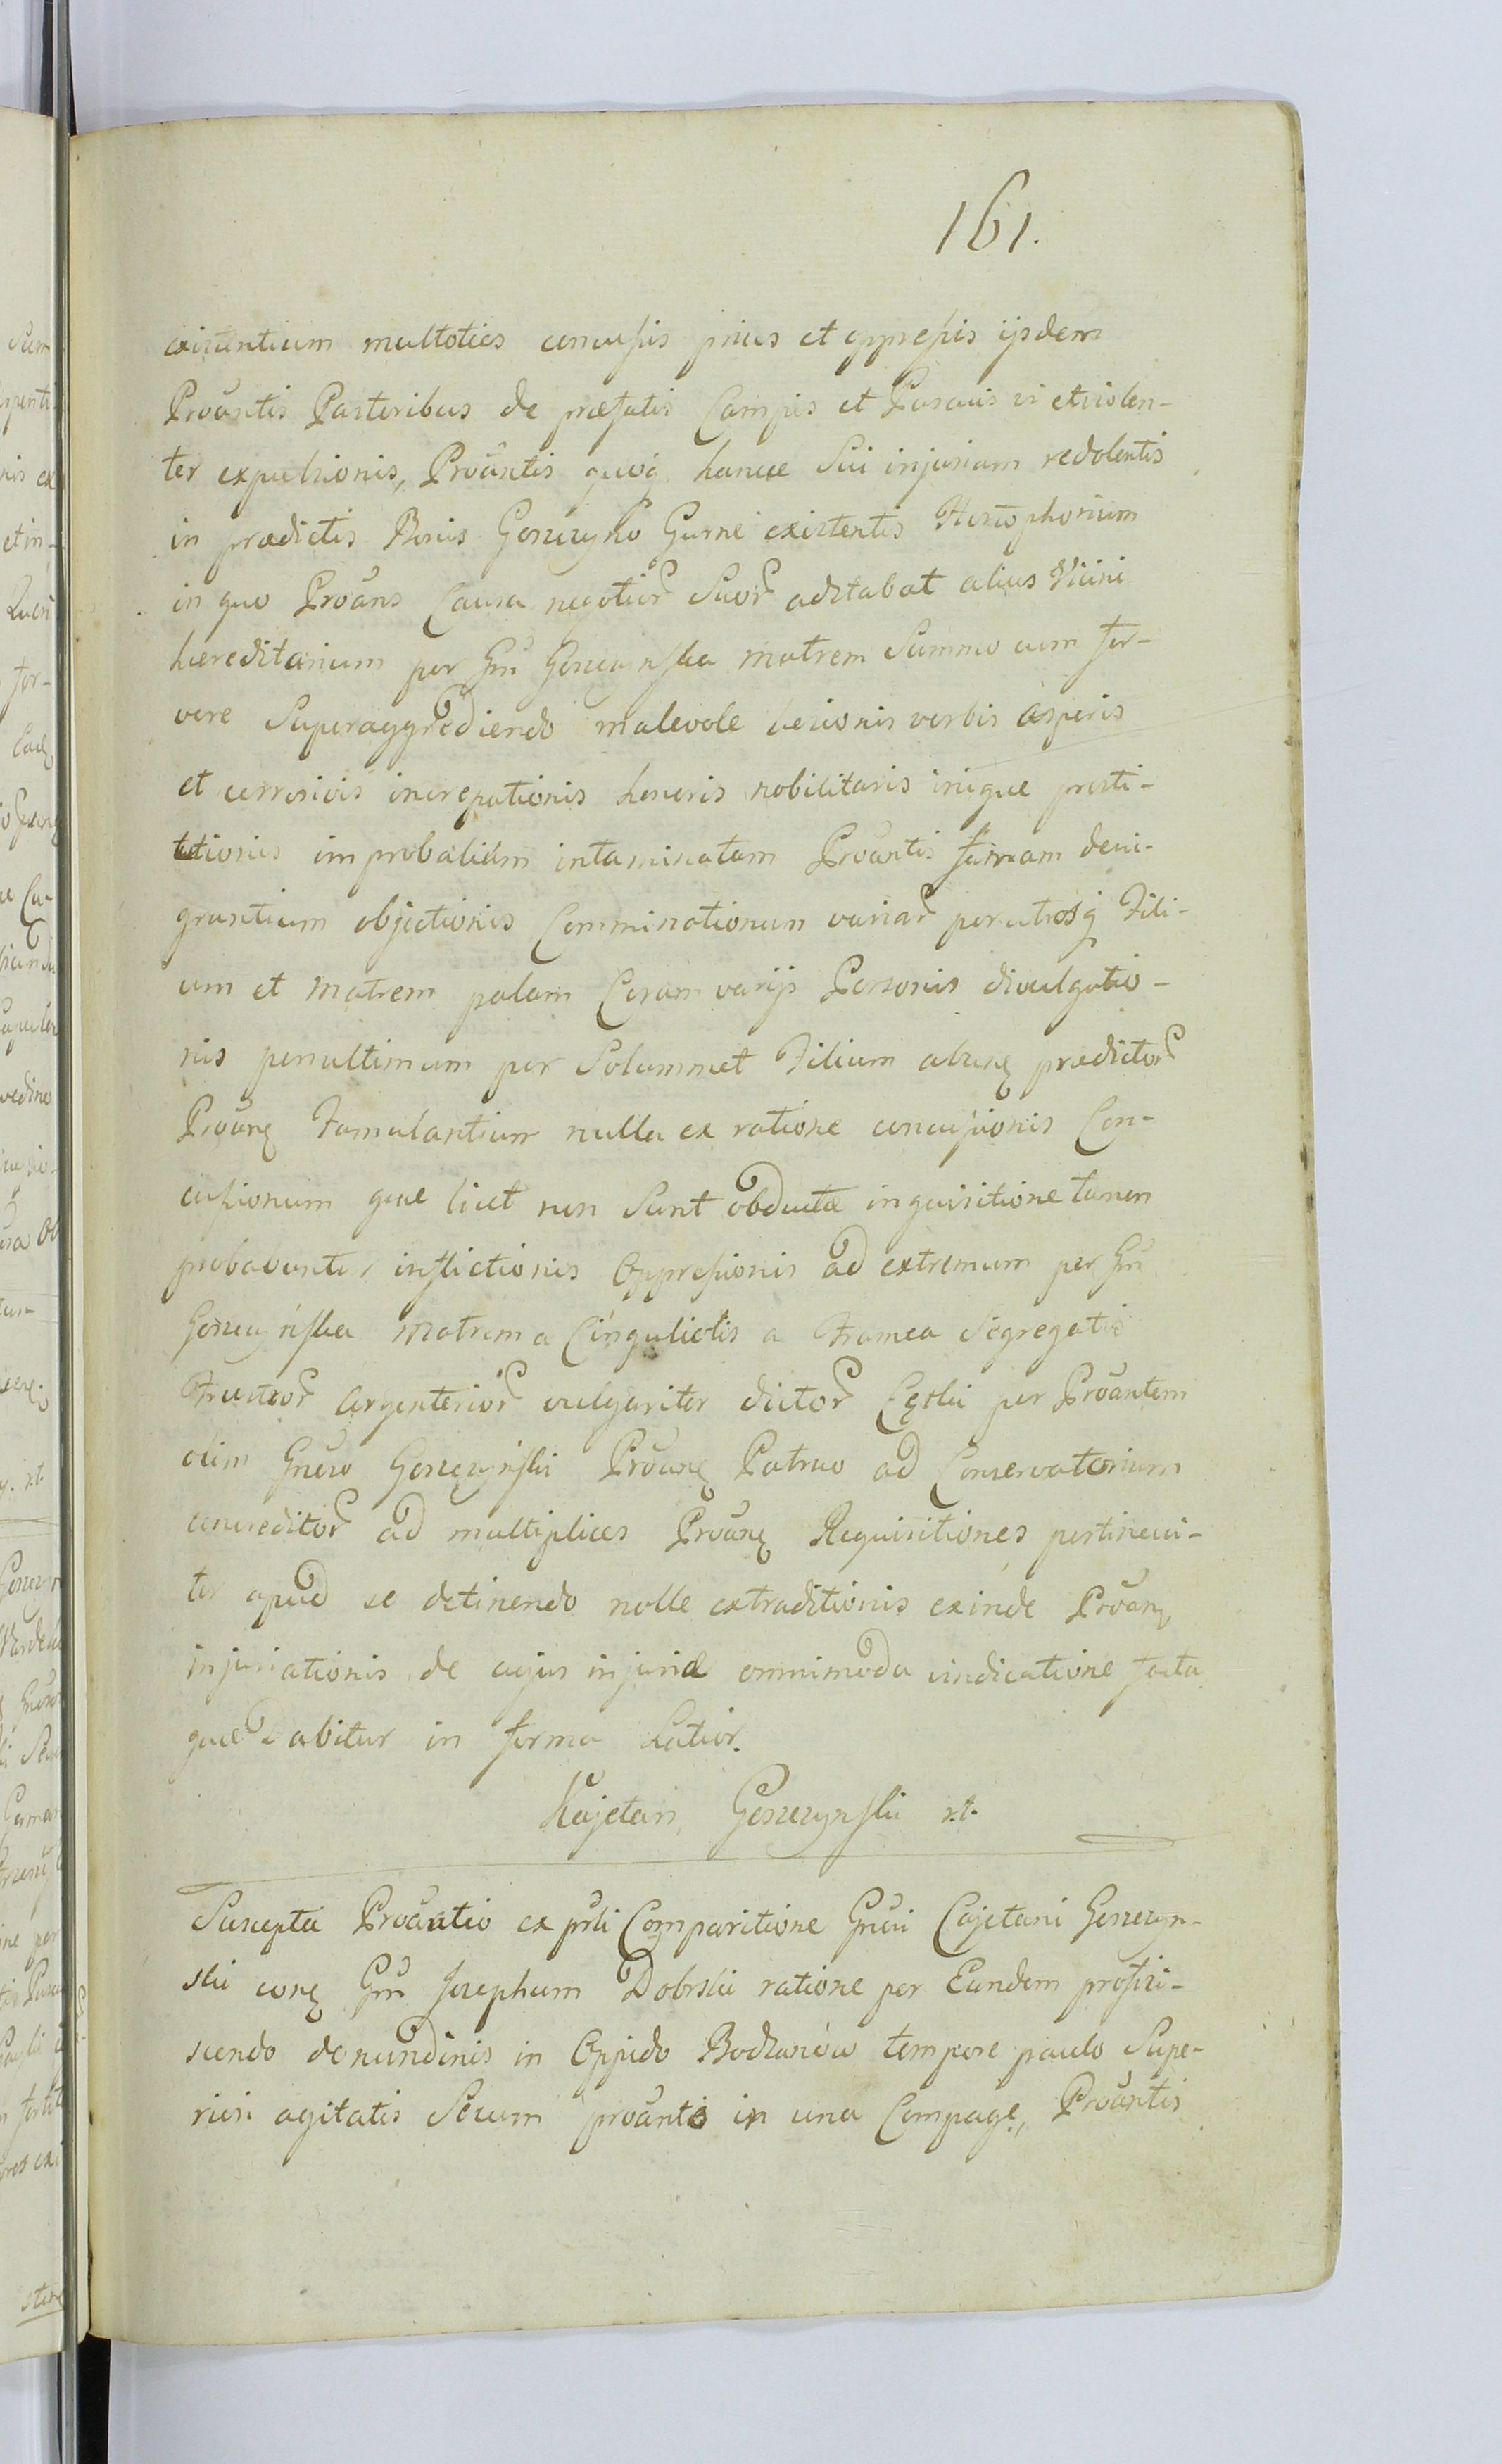 161.
existentium multoties concussis prius et oppressis ijsdem
Proãntis Pastoribus de praefatis Campis et Pascuis vi et violen-
ter expulsionis, Proãntis quoq hancce Sui injuriam redolentis
in praedictis Bonis Goszczyno Gurne existentis
in quo Proãns Causa negotior Suor adstabat alias Vicini
haereditarium per Gm Goszczynska matrem Summo cum fer-
vore Superaggrediendo malevole laesionis verbis asperis
et corrosivis increpationis honoris nobilitaris inique prosti-
tutionis improbalium intaminatam Proãntis famam deni-
grantium objectionis Comminationum variar per utrosq Fili-
um et matrem palam Coram varijs Personis divulgatio-
nis penultimum per Solummet Filium praedictor
Proãn Famulantium nulla ex ratione concussionis Con-
cussionum quae licet non Sunt obductae inquisitione tamen
probabuntur inflictionis Oppressionis ad extremum per Gm
Goszczynska matrem a Cinguliotis a Framea Segregatis
Frustror argenterior vulgariter dictor Cęski per Proãntem
olim Gneso Goszczynski Proãn Patruo ad Conservatorium
concreditor ad multiplices Proãn Requisitiones pertinaci-
ter apud se detinendo nolle extraditionis exinde Proãn
injuriationis de cujus injuriae omnimoda vindicatione facta
quae Dabitur in forma Latior.
Kajetan Goszczynski
Suscepta Proãatio ex prsti Comparitione Gnesi Cajetani Goszczyn-
ski con Gm Josephum Dobrski ratione per Eundem profici-
scendo de nundinis in Oppido Bodzanów tempore paulo Supe-
riori agitatis Secum proãntis in una Compage, Proãntis